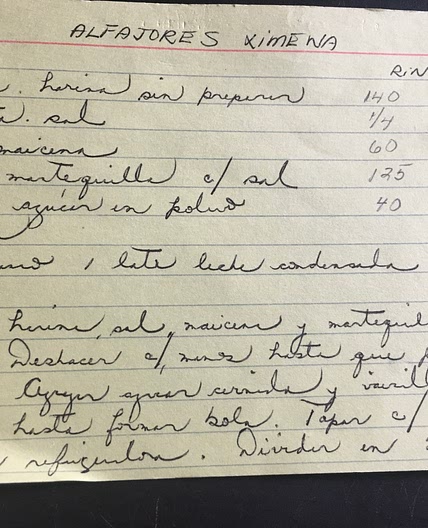 ALFAJORES XIMENA
RIN
. harina sin preparar 140
. sal 1/4
maicena 60
mantequilla c/ sal 125
azúcar en polvo 40
1 late leche condensada
harina, sal, maicena y mantequil
Deshacer c/ manos hasta que
Agregar azucar cernida y
hasta formar bola. Tapar c/
refrigeradora. Dividir en